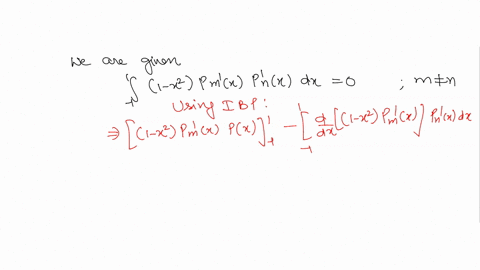 we are given
∫₋₁¹ (1-x²) Pm'(x) Pn'(x) dx = 0 ; m≠n
Using IBP:
⇒ [(1-x²) Pm'(x) P(x)]₋₁¹ - ∫₋₁¹ d/dx [(1-x²) Pm'(x)] Pn'(x) dx